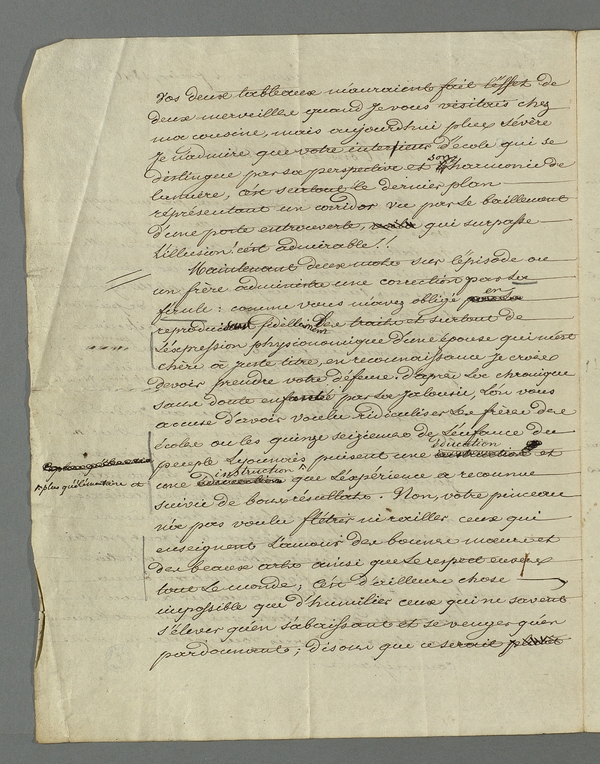 Vos deux tableaux m'auraient fait l'effet de
deux merveilles quand je vous visitais chez
ma cousine, mais aujourd'hui plus sévère
je n'admire que votre intérieur d'école qui se
distingue par sa perspective et son harmonie de
lumière, c'est surtout le dernier plan
représentant un corridor vu par le baillement
d'une porte entrouverte, qui surpasse
l'illusion! c'est admirable!!
Maintenant deux mots sur l'épisode ou
un frère administre une correction par la
férule: comme vous m'avez obligé en
reproduisant fidèlement les traits et surtout de
l'expression physionomique d'une épouse qui m'est
chère à juste titre, en reconnaissance je crois
devoir prendre votre défense. d'après la chronique
sans doute enfantée par la jalousie, l'on vous
accuse d'avoir voulu ridiculiser les frères des
écoles ou les quinze seizièmes de l'enfance du
peuple Lyonnais puisent une éducation et
plus qu'élémentaire et
une instruction que l'expérience a reconnue
suivie de bons résultats. Non, votre pinceau
n'a pas voulu flétrir ni railler ceux qui
enseignent l'amour des bonnes mœurs et
des beaux arts ainsi que le respect envers
tout le monde; c'est d'ailleurs chose
impossible que d'humilier ceux qui ne savent
s'élever qu'en s'abaissant et se venger qu'en
pardonnant; disons que ce serait